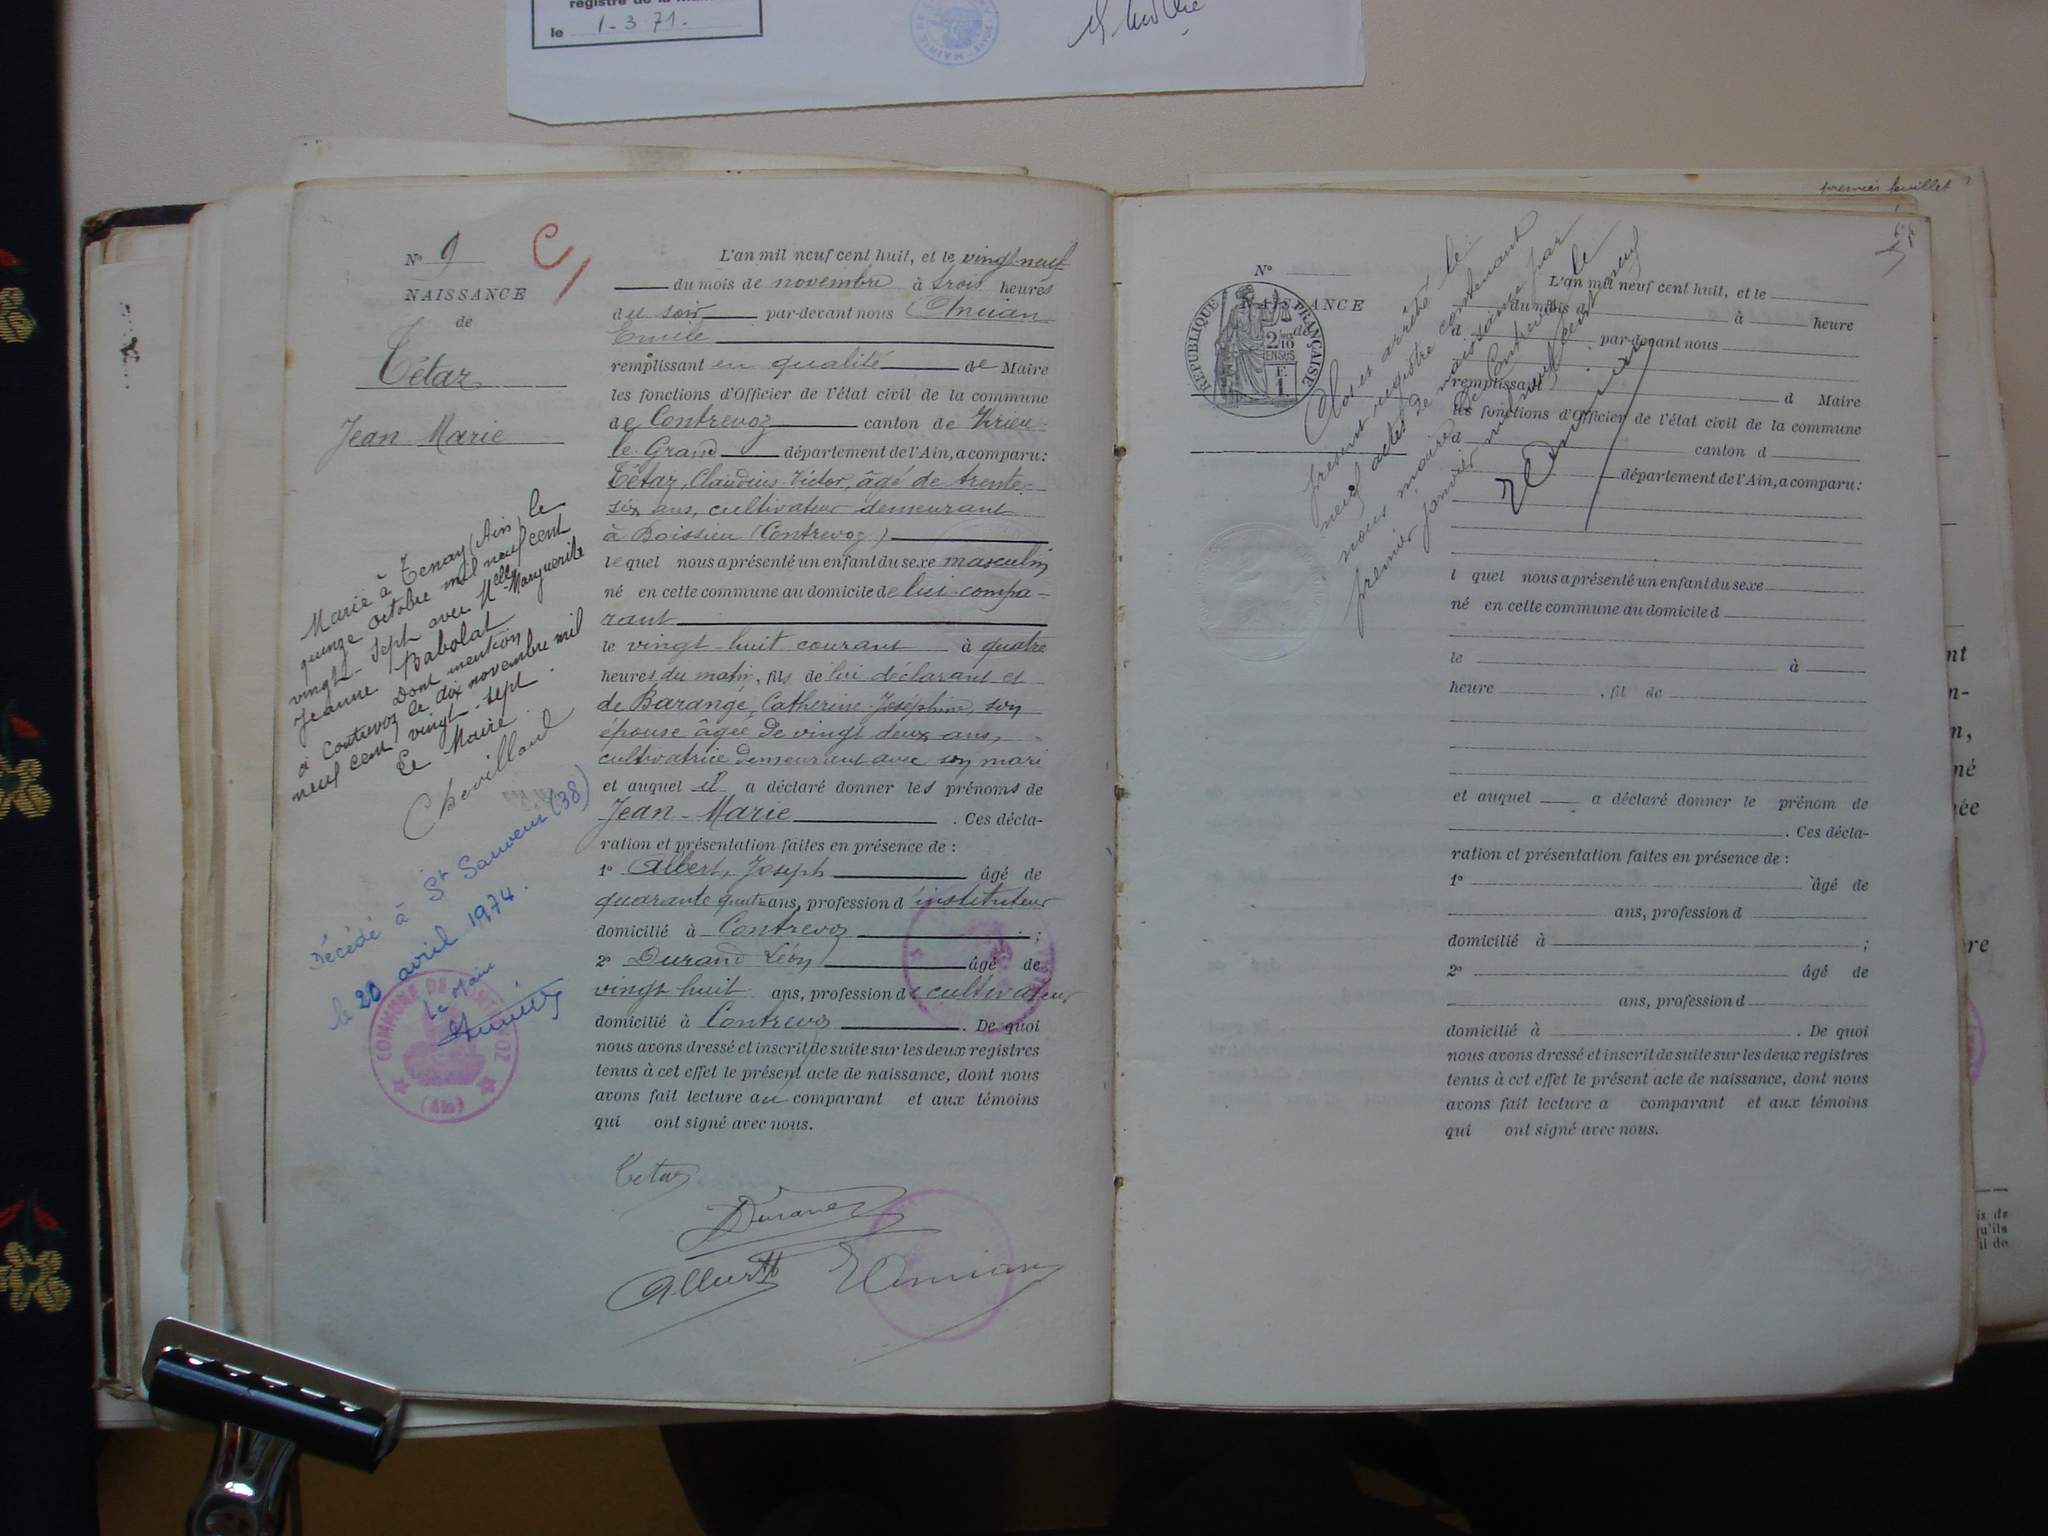 le 1-3 71.
premier feuillet
N° 9
NAISSANCE
de
Tétaz
Jean-Marie
Marié à Tenay (Ain) le
quinze octobre mil neuf cent
vingt-sept avec Melle Marguerite
Jeanne Babolat
Dont mention
à Contrevoz le dix novembre mil
neuf cent vingt-sept.
Le Maire
Chevillard
Décédé à St Sauveur (38)
le 20 avril 1974.
Le Maire
COMMUNE DE CONTREVOZ
(Ain)
L'an mil neuf cent huit, et le vingt-neuf
du mois de novembre à trois heures
du soir par-devant nous Ancian
Emile
remplissant en qualité de Maire
les fonctions d'Officier de l'état civil de la commune
de Contrevoz canton de Virieu-
le-Grand département de l'Ain, a comparu:
Tétaz, Claudius-Victor, âgé de trente-
six ans, cultivateur demeurant
à Boissieu (Contrevoz)
lequel nous a présenté un enfant du sexe masculin
né en cette commune au domicile de lui compa-
rant
le vingt-huit courant à quatre
heures du matin, fils de lui déclarant et
de Barangé, Catherine-Joséphine, son
épouse âgée de vingt deux ans,
cultivatrice demeurant avec son mari
et auquel il a déclaré donner les prénoms de
Jean-Marie. Ces décla-
ration et présentation faites en présence de :
1° Albert, Joseph âgé de
quarante quatre ans, profession d'instituteur
domicilié à Contrevoz ;
2° Durand Léon âgé de
vingt huit ans, profession de cultivateur
domicilié à Contrevoz. De quoi
nous avons dressé et inscrit de suite sur les deux registres
tenus à cet effet le présent acte de naissance, dont nous
avons fait lecture au comparant et aux témoins
qui ont signé avec nous.
Tétaz
Durand
Albert
EAncian
Clos et arrêté le
présent registre contenant
neuf actes de naissance par
nous maire de Contrevoz le
premier janvier mil neuf cent neuf
EAncian
N°
NAISSANCE
de
RÉPUBLIQUE FRANÇAISE
2 10mes
EN SUS
F
1
L'an mil neuf cent huit, et le
du mois d à heure
d par-devant nous
remplissant d Maire
les fonctions d'Officier de l'état civil de la commune
d canton d
département de l'Ain, a comparu:
l quel nous a présenté un enfant du sexe
né en cette commune au domicile d
le à
heure , fil de
et auquel a déclaré donner le prénom de
. Ces décla-
ration et présentation faites en présence de :
1° âgé de
ans, profession d
domicilié à ;
2° âgé de
ans, profession d
domicilié à . De quoi
nous avons dressé et inscrit de suite sur les deux registres
tenus à cet effet le présent acte de naissance, dont nous
avons fait lecture a comparant et aux témoins
qui ont signé avec nous.